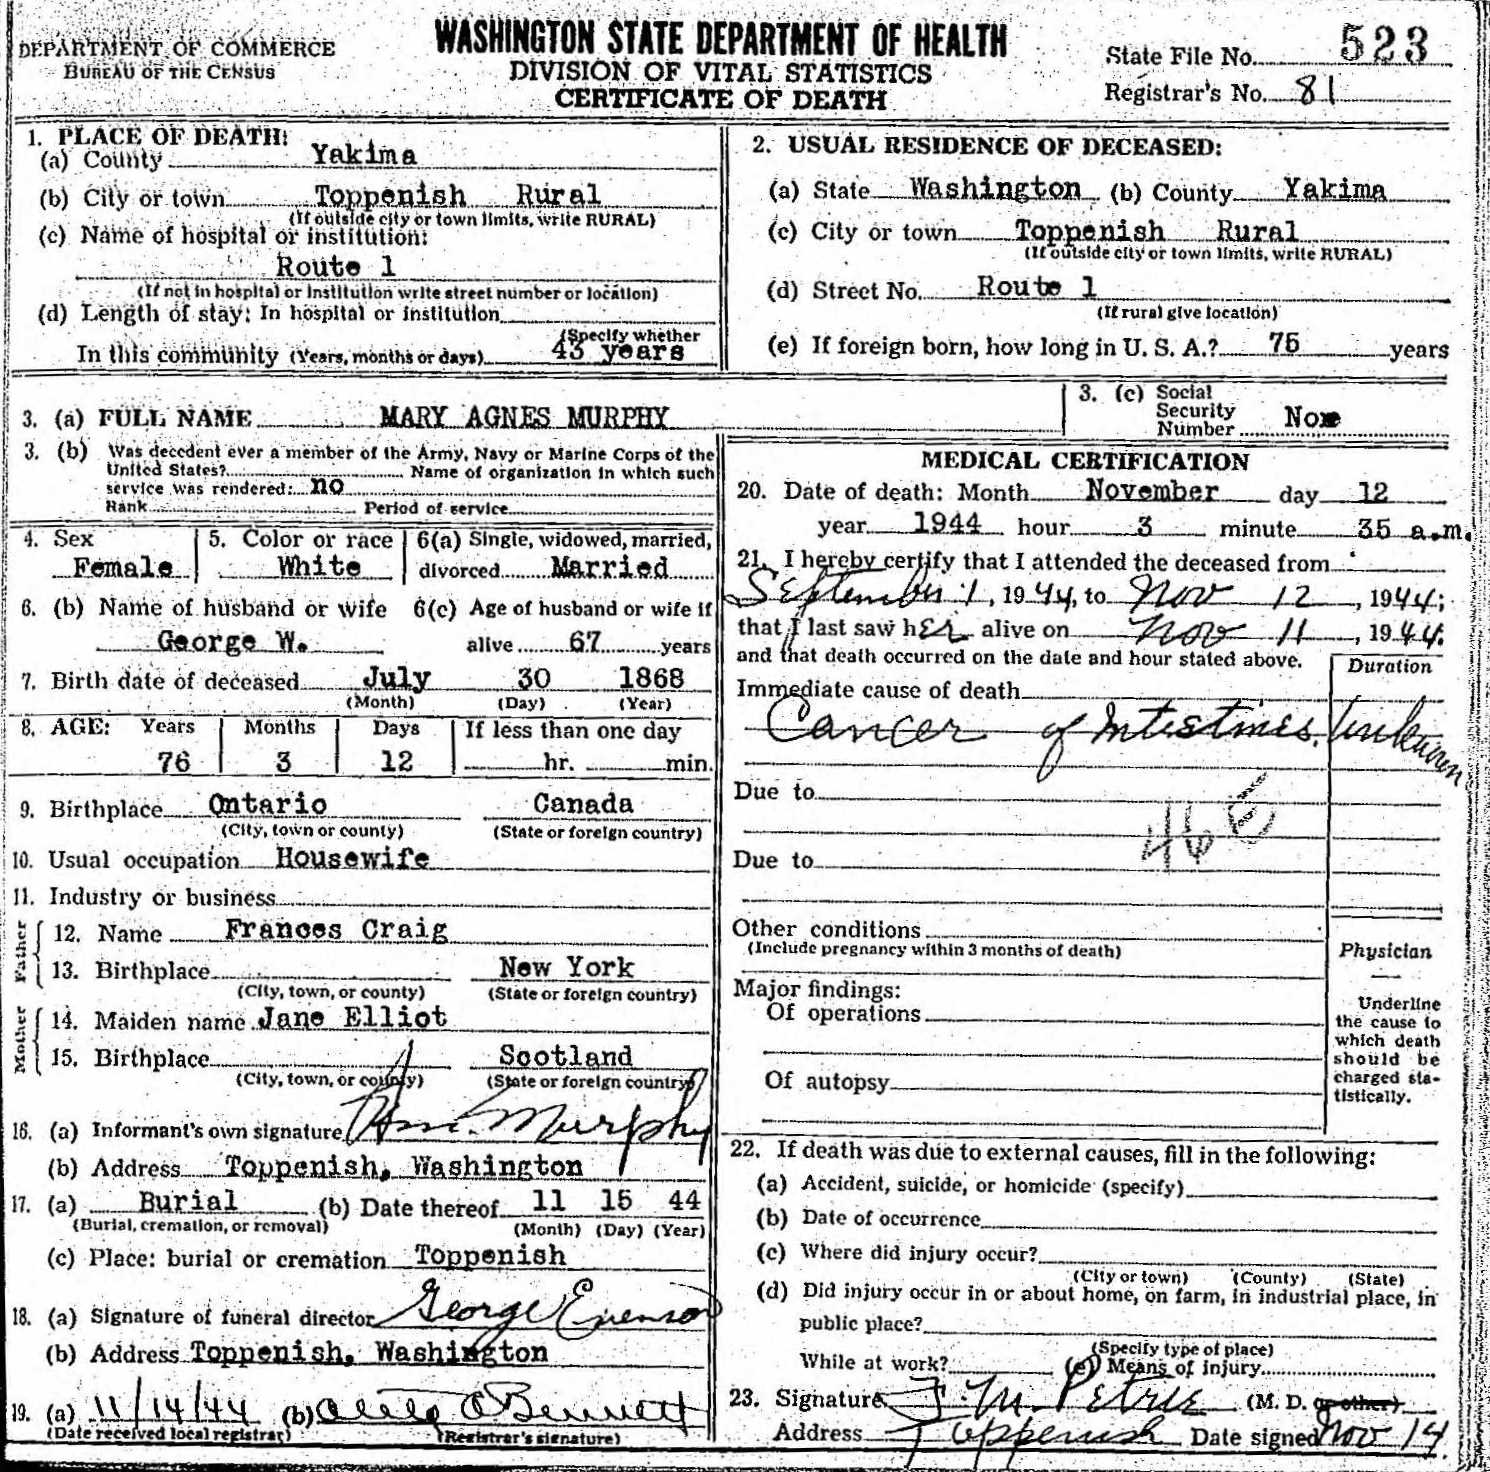 DEPARTMENT OF COMMERCE
BUREAU OF THE CENSUS
WASHINGTON STATE DEPARTMENT OF HEALTH
DIVISION OF VITAL STATISTICS
CERTIFICATE OF DEATH
State File No. 523
Registrar's No. 81
1. PLACE OF DEATH:
(a) County Yakima
(b) City or town Toppenish Rural
(If outside city or town limits, write RURAL)
(c) Name of hospital or institution:
Route 1
(If not in hospital or institution write street number or location)
(d) Length of stay: In hospital or institution
(Specify whether
In this community (Years, months or days) 43 years
2. USUAL RESIDENCE OF DECEASED:
(a) State Washington (b) County Yakima
(c) City or town Toppenish Rural
(If outside city or town limits, write RURAL)
(d) Street No. Route 1
(If rural give location)
(e) If foreign born, how long in U. S. A.? 75 years
3. (a) FULL NAME MARY AGNES MURPHY
3. (c) Social
Security
Number
3. (b) Was decedent ever a member of the Army, Navy or Marine Corps of the
United States? Name of organization in which such
service was rendered: no
Rank Period of service
4. Sex
Female
5. Color or race
White
6(a) Single, widowed, married,
divorced Married
6. (b) Name of husband or wife 6(c) Age of husband or wife if
George W. alive 67 years
7. Birth date of deceased July 30 1868
(Month) (Day) (Year)
8. AGE: Years Months Days If less than one day
76 3 12 hr. min.
9. Birthplace Ontario Canada
(City, town or county) (State or foreign country)
10. Usual occupation Housewife
11. Industry or business
Father
12. Name Frances Craig
13. Birthplace New York
(City, town, or county) (State or foreign country)
Mother
14. Maiden name Jane Elliot
15. Birthplace Scotland
(City, town, or county) (State or foreign country)
16. (a) Informant's own signature Murphy
(b) Address Toppenish, Washington
17. (a) Burial (b) Date thereof 11 15 44
(Burial, cremation, or removal) (Month) (Day) (Year)
(c) Place: burial or cremation Toppenish
18. (a) Signature of funeral director George Evenson
(b) Address Toppenish, Washington
19. (a) 11/14/44 (b) Bennett
(Date received local registrar) (Registrar's signature)
MEDICAL CERTIFICATION
20. Date of death: Month November day 12
year 1944 hour 3 minute 35 a.m.
21. I hereby certify that I attended the deceased from
September 1, 1944, to Nov 12, 1944;
that I last saw her alive on Nov 11, 1944.
and that death occurred on the date and hour stated above.
Duration
Immediate cause of death
Cancer of Intestines. Unknown
Due to
46 E
Due to
Other conditions
(Include pregnancy within 3 months of death)
Major findings:
Of operations
Of autopsy
Physician
Underline
the cause to
which death
should be
charged sta-
tistically.
22. If death was due to external causes, fill in the following:
(a) Accident, suicide, or homicide (specify)
(b) Date of occurrence
(c) Where did injury occur?
(City or town) (County) (State)
(d) Did injury occur in or about home, on farm, in industrial place, in
public place?
(Specify type of place)
While at work? (e) Means of injury
23. Signature J. M. Petrie (M. D. or other)
Address Toppenish Date signed Nov 14